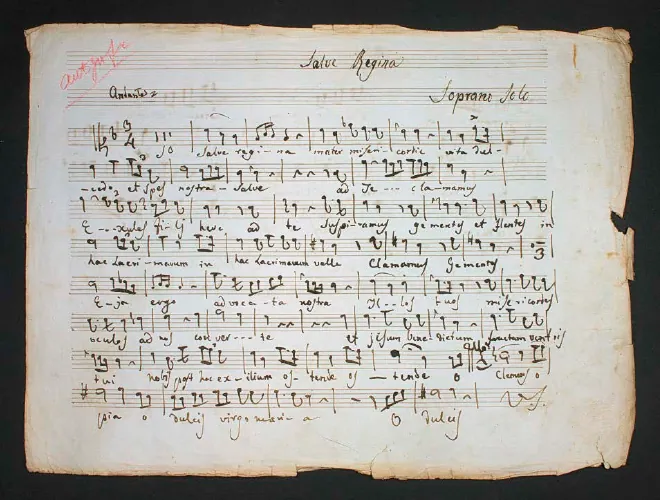 autografe
Salve Regina
Andante
Soprano Solo
3
4
10 Salve regi - na mater miseri - cordie vita dul -
- cedo, et spes nostra - Salve ad Te - - - cla - mamus
E - - xules fi - lij heve ad te suspi - ramus gementes et flentes in
hac Lacri - marum in hac Lacrimarum valle Clamamus Gementes
E - ja ergo advoca - ta nostra Il - - los tuos misericordes
oculos ad nos conver - - - te et jesum bene - dictum fructum ventris
tui nobis post hoc ex - ilium os - tende os - tende o Clemens o
pia o dulcis virgo maria a O dulcis
V.S.